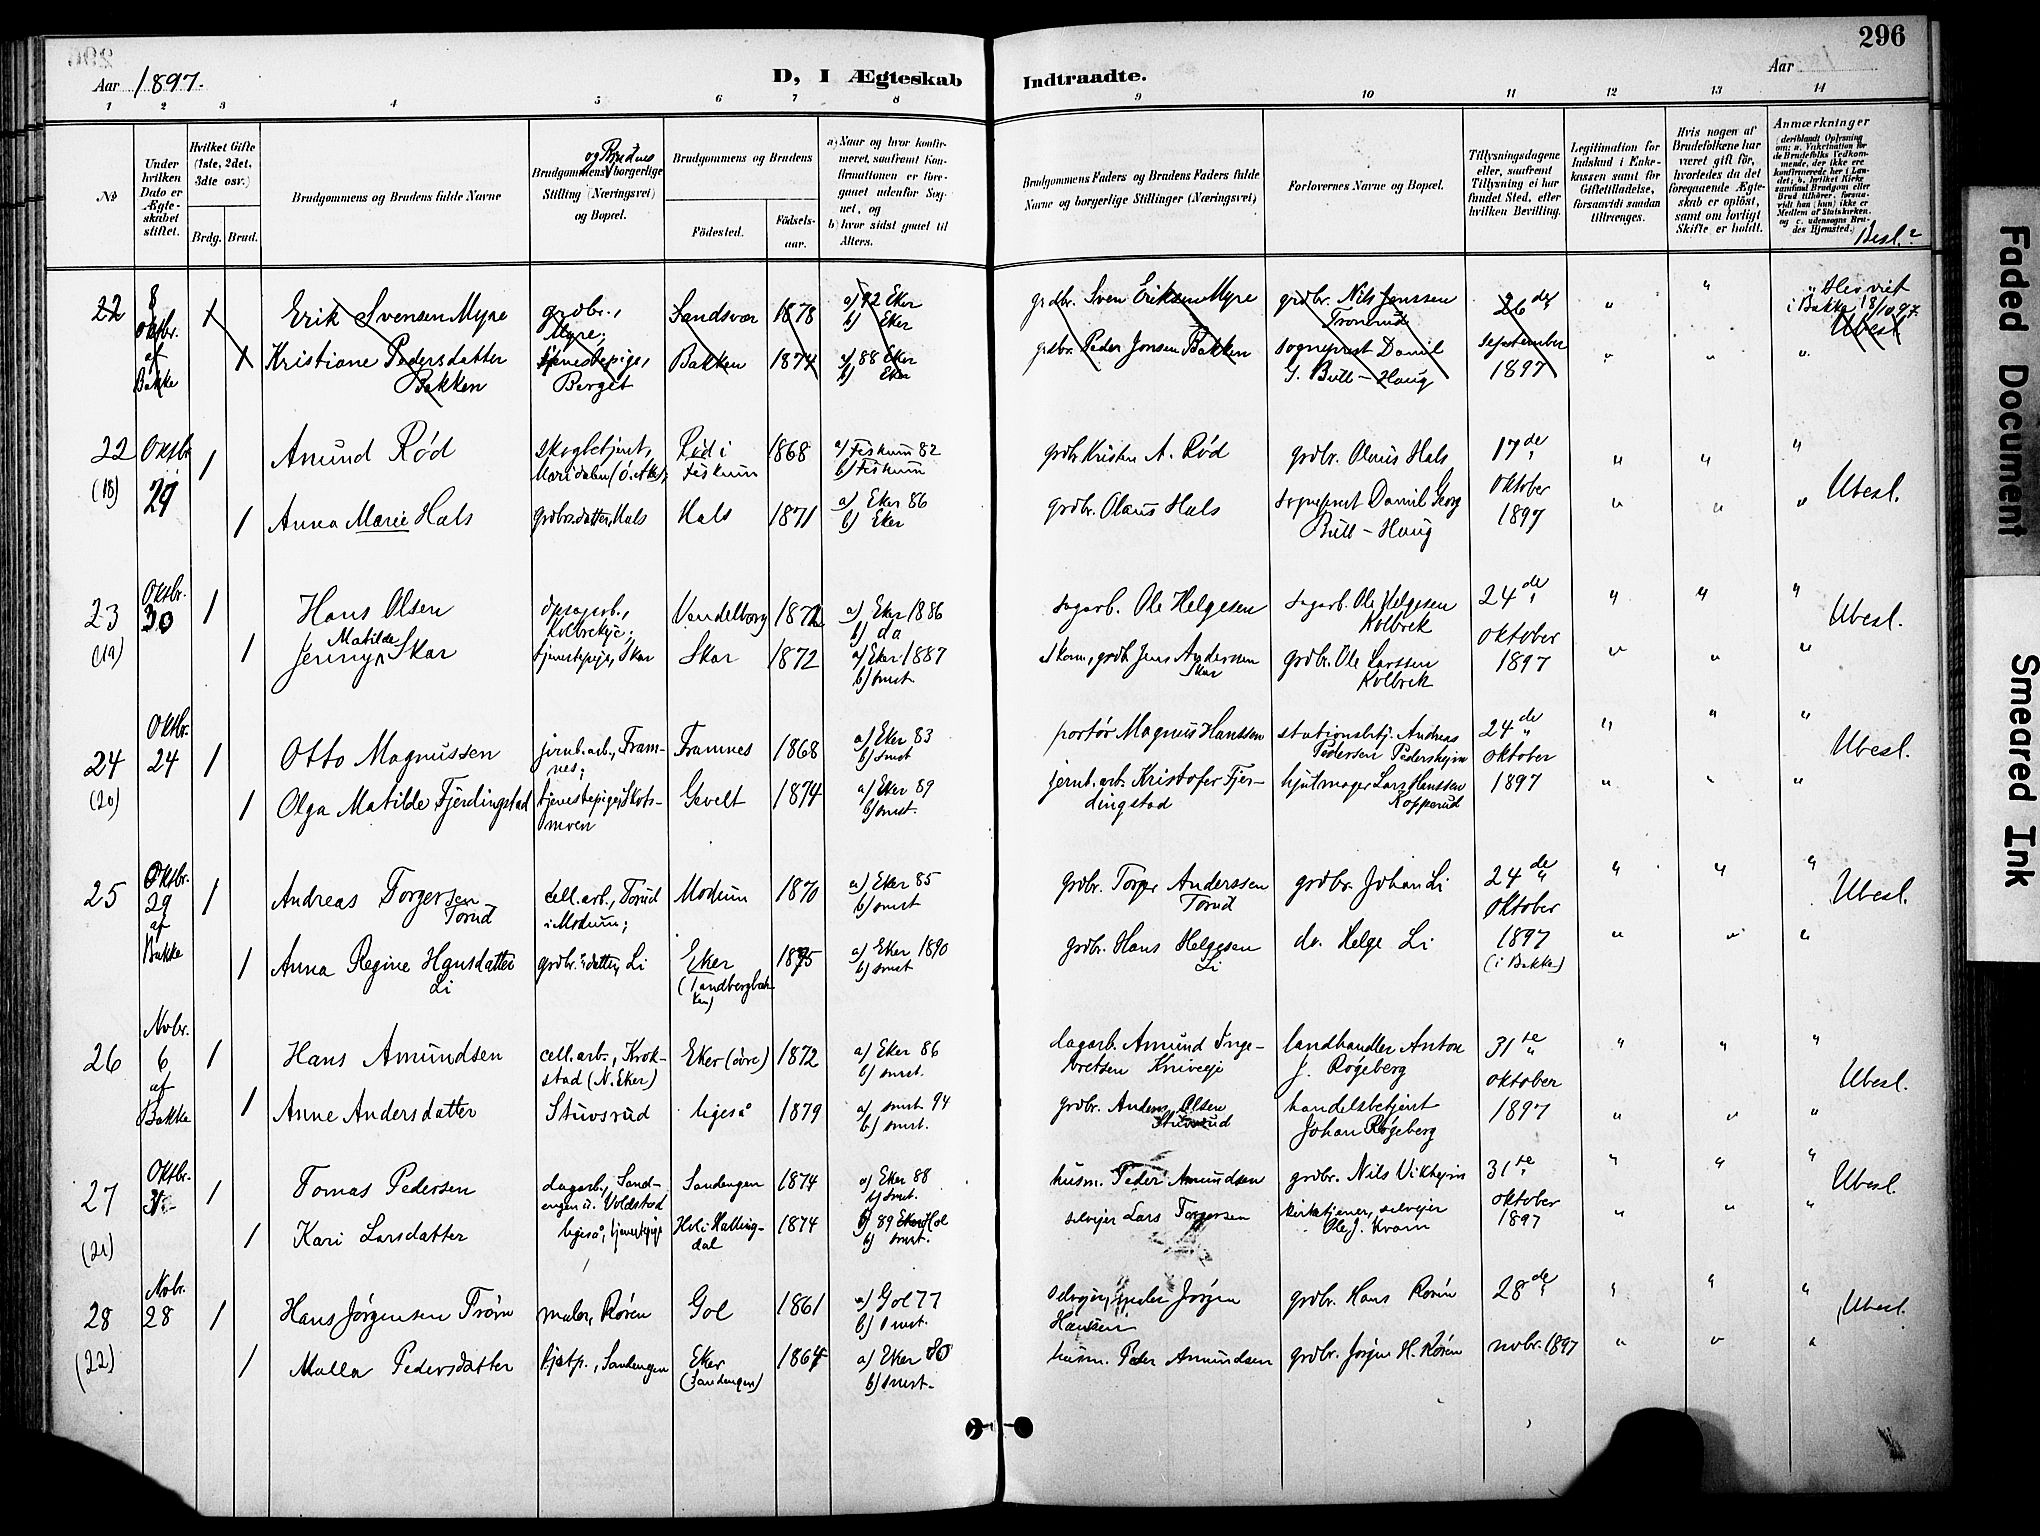 296
Aar 1897.
D, I Ægteskab
Indtraadte.
Aar
1 2 3 4 5 6 7 8 9 10 11 12 13 14
No
Under hvilken Dato er Ægteskabet stiftet.
Hvilket Gifte (1ste, 2det, 3die osv.)
Brdg. Brud.
Brudgommens og Brudens fulde Navne
Brudgommens og Brudens borgerlige Stilling (Næringsvei) og Bopæl.
Brudgommens og Brudens
Födested.
Födsels-aar.
a) Naar og hvor konfirmeret, saafremt Konfirmationen er foregaaet udenfor Sognet, og
b) hvor sidst gaaet til Alters.
Brudgommens Faders og Brudens Faders fulde Navne og borgerlige Stillinger (Næringsvei)
Forlovernes Navne og Bopæl.
Tillysningsdagene eller, saafremt Tillysning ei har fundet Sted, efter hvilken Bevilling.
Legitimation for Indskud i Enkekassen samt for Giftetilladelse, forsaavidt saadan tiltrænges.
Hvis nogen af Brudefolkene har været gift før, hvorledes da det foregaaende Ægteskab er opløst, samt om lovligt Skifte er holdt.
Anmærkninger
(deriblandt Oplysning om: a. Vakcination for de Brudefolks Vedkommende, der ikke ere konfirmerede her i Landet; b. hvilket Kirkesamfund Brudgom eller Brud tilhører, forsaavidt han (hun) ikke er Medlem af Statskirken, og c. udensogns Brudes Hjemsted.)
Besl.?
22 8 Oktbr. af Bakke 1 Erik Svensen Myre grdbr., Myre; Sandsvær 1878 a) 92 Eker b) Eker grdbr. Sven Eriksen Myre grdbr. Nils Jenssen Tronrud 26 de september 1897 " " " Blev viet i Bakke 18/10 97. Ubesl.
1 Kristiane Pedersdatter Bakken tjenestepige, Berget Bakken 1874 a) 88 Eker b) Eker grdbr. Peder Jonsen Bakken sogneprest Daniel G. Bull - Haug " " "
22 (18) Oktbr. 29 1 Amund Rød skogbetjent, Maridalen (ö. Aker), Rød i Fiskum 1868 a) Fiskum 82 b) Fiskum grdbr Kristen A. Rød grdbr. Olaus Hals 17 de oktober 1897 " " " Ubesl.
1 Anna Marie Hals grdbrs.datter, Hals Hals 1871 a) Eker 86 b) Eker grdbr. Olaus Hals sogneprest Daniel Georg Bull - Haug " " "
23 (19) Oktbr. 30 1 Hans Olsen Kolbrekeje; Vendelborg 1872 a) Eker 1886 b) da sagarb. Ole Helgesen sagarb. Ole Helgesen Kolbrek 24 de oktober 1897 " " " Ubesl.
1 Jenny Matilde Skar tjenestepige, Skar Skar 1872 a) Eker 1887 b) smst grdb. Jens Anderssen Skar grdbr. Ole Larssen Kolbrek " " "
24 (20) Oktbr. 24 1 Otto Magnussen jernb. arb., Framnes; Framnes 1868 a) Eker 83 b) smst portør Magnus Hanssen stationsbtj. Andreas Pedersen Pedershejm 24 de oktober 1897 " " " Ubesl.
1 Olga Matilde Fjerdingstad tjenestepige, Skotsmoen Gevelt 1874 a) Eker 89 b) smst. jernb. arb. Kristofer Fjerdingstad hjulmager Lars Hanssen Kopperud " " "
25 Oktbr. 29 af Bakke 1 Andreas Torgersen Torud cell. arb., Torud i Modum; Modum 1870 a) Eker 85 b) smst grdbr. Torger Anderssen Torud grdbr. Johan Li 24 de oktober 1897 (i Bakke) " " " Ubesl.
1 Anna Regine Hansdatter Li grdbr.s datter, Li Eker (Tandbergbakken) 1875 a) Eker 1890 b) smst grdbr. Hans Helgesen Li do. Helge Li " " "
26 Nobr. 6 af Bakke 1 Hans Amundsen cell. arb., Krokstad (N. Eker) Eker (övre) 1872 a) Eker 86 b) smst. dagarb. Amund Ingebretsen Kniveeje landhandler Anton J. Røgeberg 31 te oktober 1897 " " " Ubesl.
1 Anne Andersdatter Stuvsrud ligeså 1879 a) smst 94 b) smst. grdbr. Anders Olsen Stuvsrud handelsbetjent Johan Røgeberg " " "
27 (21) Oktbr. 31 1 Tomas Pedersen dagarb., Sandengen u. Voldstad Sandengen 1874 a) Eker 88 b) smst. husm. Peder Amundsen grdbr. Nils Vikhejm 31 te oktober 1897 " " " Ubesl.
1 Kari Larsdatter ligeså, tjenestepige Hol i Hallingdal 1874 a) 89 Eker Hol b) smst. selvejer Lars Torgersen kirketjener, selvejer Ole J. Kvam " " "
28 (22) Nobr. 28 1 Hans Jørgensen Trøim maler, Røren Gol 1861 a) Gol 77 b) smst. selvejer, Jørgen Hanssen grdbr. Hans Røren 28 de nobr. 1897 " " " Ubesl.
1 Malla Pedersdatter tjstp., Sandengen Eker (Sandengen) 1864 a) Eker 80 b) smst. husm. Peder Amundsen grdbr. Jørgen H. Røren " " "
Faded Document
Smeared Ink